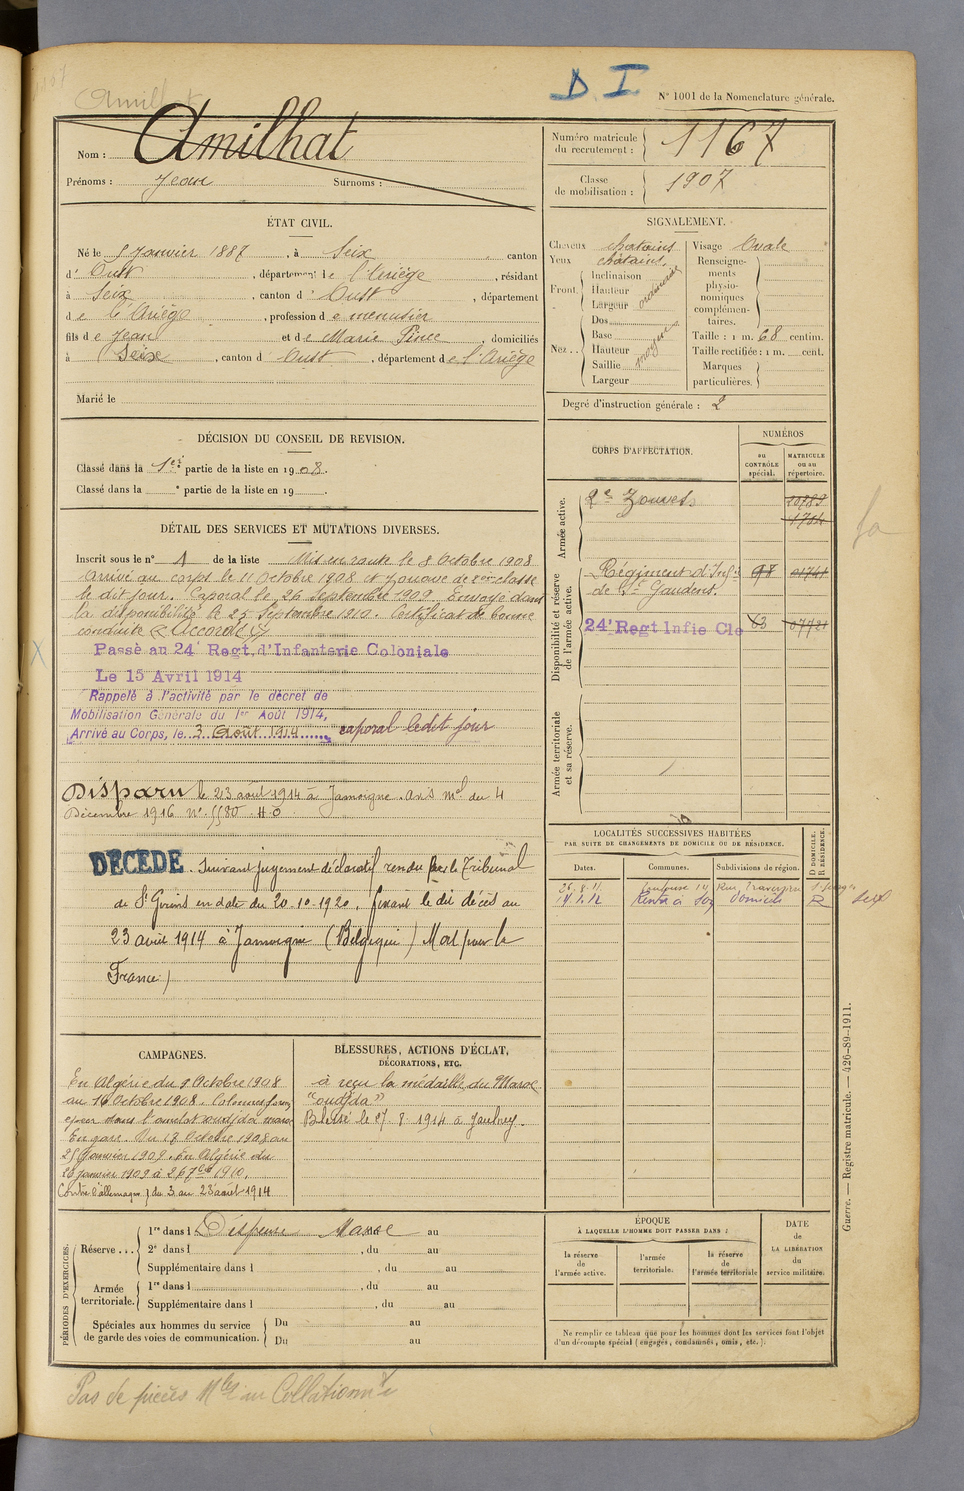 D. I.
N° 1001 de la Nomenclature générale.
Amilhat
Nom : Amilhat
Prénoms : Jean Surnoms :
Numéro matricule du recrutement : 1167
Classe de mobilisation : 1907
ÉTAT CIVIL.
Né le 5 Janvier 1887, à Seix, canton
d' Oust, département de l'Ariège, résidant
à Seix, canton d' Oust, département
de l'Ariège, profession de menuisier
fils de Jean et de Marie Pince, domiciliés
à Seix, canton d' Oust, département de l'Ariège
Marié le
SIGNALEMENT.
Cheveux chatains
Yeux chatains
Front. Inclinaison
Hauteur ordinaire
Largeur
Nez.. Dos
Base
Hauteur moyen
Saillie
Largeur
Visage Ovale
Renseignements physionomiques complémentaires.
Taille : 1 m. 68 centim.
Taille rectifiée : 1 m. cent.
Marques particulières.
Degré d'instruction générale : 2
DÉCISION DU CONSEIL DE REVISION.
Classé dans la 1ère partie de la liste en 1908.
Classé dans la e partie de la liste en 19 .
DÉTAIL DES SERVICES ET MUTATIONS DIVERSES.
Inscrit sous le n° 1 de la liste Mis en route le 8 Octobre 1908
Arrivé au corps le 11 Octobre 1908 et Zouave de 2e classe
le dit jour. Caporal le 26 Septembre 1909. Envoyé dans
la disponibilité le 25 Septembre 1910. Certificat de bonne
conduite "Accordé"
Passé au 24e Regt. d'Infanterie Coloniale
Le 15 Avril 1914
Rappelé à l'activité par le décret de
Mobilisation Générale du 1er Août 1914,
Arrivé au Corps, le 3 Août 1914 caporal ledit jour
Disparu le 23 août 1914 à Jamoigne. avis mel du 4
Décembre 1916 N°. 5580 H.O
DÉCÉDÉ. Suivant jugement déclaratif rendu par le Tribunal
de St Girons en date du 20-10-1920, fixant le dit décès au
23 août 1914 à Jamoigne (Belgique) Mort pour la
France)
CORPS D'AFFECTATION.
NUMÉROS
au CONTRÔLE spécial.
MATRICULE ou au répertoire.
Armée active.
2e Zouaves
1704
Disponibilité et réserve de l'armée active.
Régiment d'Infie 98 01741
de St Gaudens.
24e Regt Infie Cle 63 07721
Armée territoriale et sa réserve.
LOCALITÉS SUCCESSIVES HABITÉES
PAR SUITE DE CHANGEMENTS DE DOMICILE OU DE RÉSIDENCE.
Dates. Communes. Subdivisions de région. D DOMICILE. R RÉSIDENCE.
26.8.11 Toulouse 14 Rue
Rentré à son domicile R Seix
CAMPAGNES.
En Algérie du 9 Octobre 1908
au 16 Octobre 1908.
En guerre. Du 17 Octobre 1908 au
25 Janvier 1909. En Algérie du
26 Janvier 1909 à 26 7bre 1910.
Contre l'allemagne) du 3 au 23 août 1914
BLESSURES, ACTIONS D'ÉCLAT,
DÉCORATIONS, ETC.
à reçu la médaille du Maroc
"oudjda"
Blessé le 27.8.1914 à Jaulney.
PÉRIODES D'EXERCICES.
Réserve... 1re dans l Dispense Maroc au
2e dans l , du au
Supplémentaire dans l , du au
Armée territoriale. 1re dans l , du au
Supplémentaire dans l , du au
Spéciales aux hommes du service de garde des voies de communication. Du au
Du au
ÉPOQUE
À LAQUELLE L'HOMME DOIT PASSER DANS :
la réserve de l'armée active.
l'armée territoriale.
la réserve de l'armée territoriale
DATE DE LA LIBÉRATION du service militaire.
Ne remplir ce tableau que pour les hommes dont les services font l'objet
d'un décompte spécial (engagés, condamnés, omis, etc.).
Guerre. — Registre matricule. — 426-89-1911.
Pas de pièces